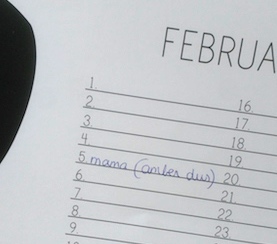 FEBRUA
1
2
3.
4.
5. mama (amber dus)
6.
7.
8.
9
16
17.
18.
19
20.
21
22
23